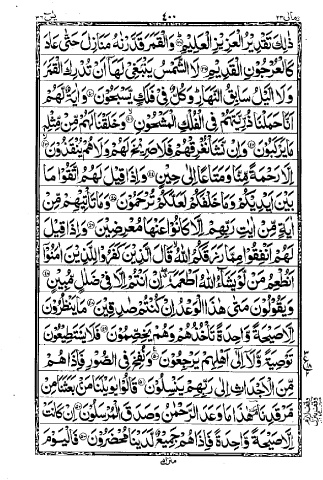 ومالى ٢٣ ٤٠٠ يس ٣٦
ذٰلِكَ تَقْدِيْرُ الْعَزِيْزِ الْعَلِيْمِ وَالْقَمَرَ قَدَّرْنٰهُ مَنَازِلَ حَتّٰى عَادَ
كَالْعُرْجُوْنِ الْقَدِيْمِ لَا الشَّمْسُ يَنْۢبَغِيْ لَهَاۤ اَنْ تُدْرِكَ الْقَمَرَ
وَلَا الَّيْلُ سَابِقُ النَّهَارِ وَكُلٌّ فِيْ فَلَكٍ يَّسْبَحُوْنَ وَاٰيَةٌ لَّهُمْ
اَنَّا حَمَلْنَا ذُرِّيَّتَهُمْ فِى الْفُلْكِ الْمَشْحُوْنِ وَخَلَقْنَا لَهُمْ مِّنْ مِّثْلِهٖ
مَا يَرْكَبُوْنَ وَاِنْ نَّشَاْ نُغْرِقْهُمْ فَلَا صَرِيْخَ لَهُمْ وَلَا هُمْ يُنْقَذُوْنَ
اِلَّا رَحْمَةً مِّنَّا وَمَتَاعًا اِلٰى حِيْنٍ وَاِذَا قِيْلَ لَهُمُ اتَّقُوْا مَا
بَيْنَ اَيْدِيْكُمْ وَمَا خَلْفَكُمْ لَعَلَّكُمْ تُرْحَمُوْنَ وَمَا تَاْتِيْهِمْ مِّنْ
اٰيَةٍ مِّنْ اٰيٰتِ رَبِّهِمْ اِلَّا كَانُوْا عَنْهَا مُعْرِضِيْنَ وَاِذَا قِيْلَ
لَهُمْ اَنْفِقُوْا مِمَّا رَزَقَكُمُ اللّٰهُ قَالَ الَّذِيْنَ كَفَرُوْا لِلَّذِيْنَ اٰمَنُوْۤا
اَنُطْعِمُ مَنْ لَّوْ يَشَآءُ اللّٰهُ اَطْعَمَهٗ اِنْ اَنْتُمْ اِلَّا فِيْ ضَلٰلٍ مُّبِيْنٍ
وَيَقُوْلُوْنَ مَتٰى هٰذَا الْوَعْدُ اِنْ كُنْتُمْ صٰدِقِيْنَ مَا يَنْظُرُوْنَ
اِلَّا صَيْحَةً وَّاحِدَةً تَاْخُذُهُمْ وَهُمْ يَخِصِّمُوْنَ فَلَا يَسْتَطِيْعُوْنَ
تَوْصِيَةً وَّلَاۤ اِلٰۤى اَهْلِهِمْ يَرْجِعُوْنَ وَنُفِخَ فِى الصُّوْرِ فَاِذَا هُمْ
مِّنَ الْاَجْدَاثِ اِلٰى رَبِّهِمْ يَنْسِلُوْنَ قَالُوْا يٰوَيْلَنَا مَنْۢ بَعَثَنَا مِنْ
مَّرْقَدِنَا هٰذَا مَا وَعَدَ الرَّحْمٰنُ وَصَدَقَ الْمُرْسَلُوْنَ اِنْ كَانَتْ
اِلَّا صَيْحَةً وَّاحِدَةً فَاِذَا هُمْ جَمِيْعٌ لَّدَيْنَا مُحْضَرُوْنَ فَالْيَوْمَ